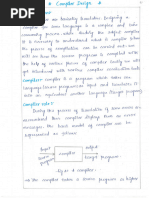 * Compiler Design *
are basically translators Designing a
Compiler are an complex and take
necessary process while studying the subject compiler
it is necessary to understand what is compiler when
the process of compilation can be carried out with
the source program is compiled with
the help of various phases of compiler finally we will
get introduced with various compiler
Compiler :- compiler is a program which takes one
language source program as input and translates
into an equivalent another language target program
Compiler role :-
During this process of translation if some errors are
encountered then compiler displays them as error
messages. The basic model of compiler can be
represented as follows
Input
source
program
compiler
output
target program.
fig :- A compiler.
The compiler takes a source program as higher